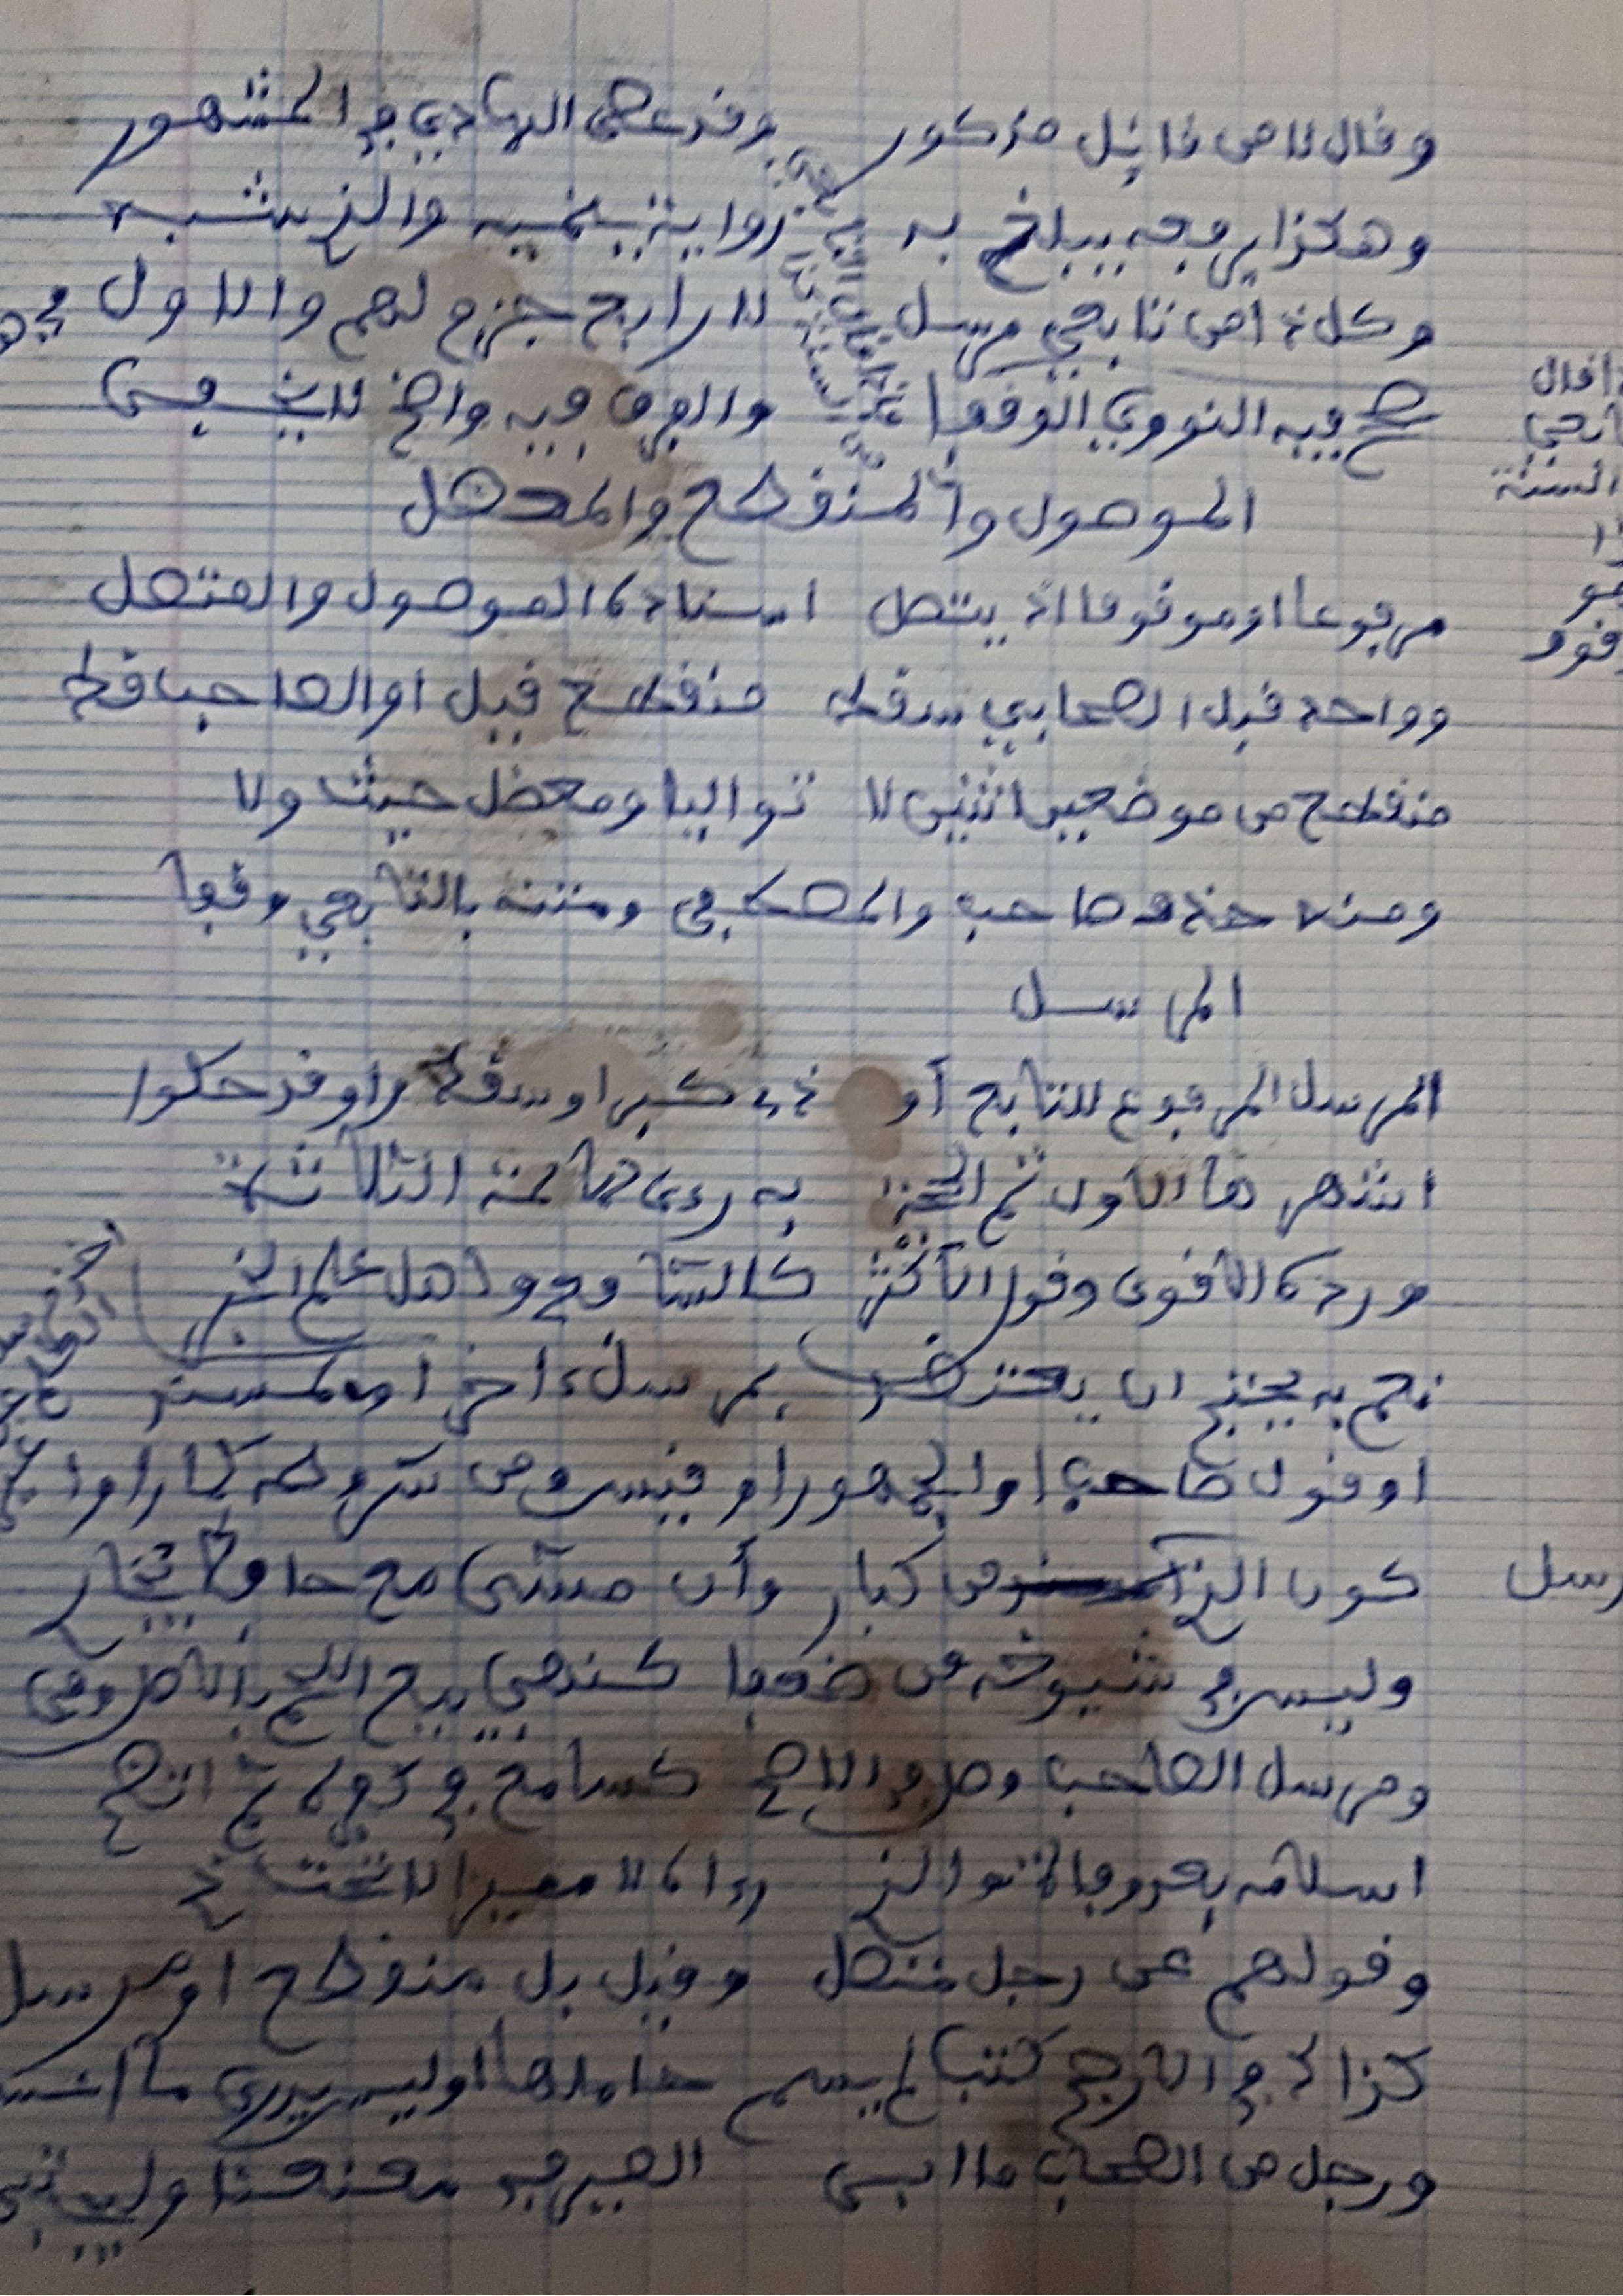 وقال لا من قائل مذكور وقد عصى الهادي في المشهور
وهكذا يرفعه يبلغ به رواية ينميه والذ يشبه
وكل ذا من تابعي مرسل لا رابع جزم لهم والاول
صحح فيه النووي الوقفا والفرق فيه واضح لا يخفى
الموصول والمنقطع والمعضل
مرفوعا او موقوفا اذ يتصل اسناده الموصول والمتصل
وواحد قبل الصحابي سقط منقطع قيل او الصاحب قط
منقطع من موضعين اثنين لا تواليا ومعضل حيث ولا
ومنه حذف صاحب والمصطفى ومتنه بالتابعي وقفا
المرسل
المرسل المرفوع للتابع أو ذي كبر او سقط راو قد حكوا
اشهرها الاول ثم الحجة به رءى الائمة الثلاثة
ورده الاقوى وقول الأكثر كالشافعي واهل علم الخبر
نعم به يحتج ان يعتضد بمرسل ءاخر او بمسند
او قول صاحب او الجمهور او قيس ومن شروطه كما راوا
كون الذ من كبار وأن مشى مع حافظ يجار
وليس في شيوخه من ضعفا كنهي بيع اللحم بالاصل وفى
ومرسل الصاحب وصل في الاصح كسامع في كفره ثم اتضح
اسلامه بعد وفاة والذ رءاه لا مميزا لا تحتذ
وقولهم عن رجل متصل وقيل بل منقطع او مرسل
كذاك في الارجح كتب لم يسم حاملها او ليس يدرى ما اتسم
ورجل من الصحاب ما ابى الصيرفي معنعنا وليجتبى